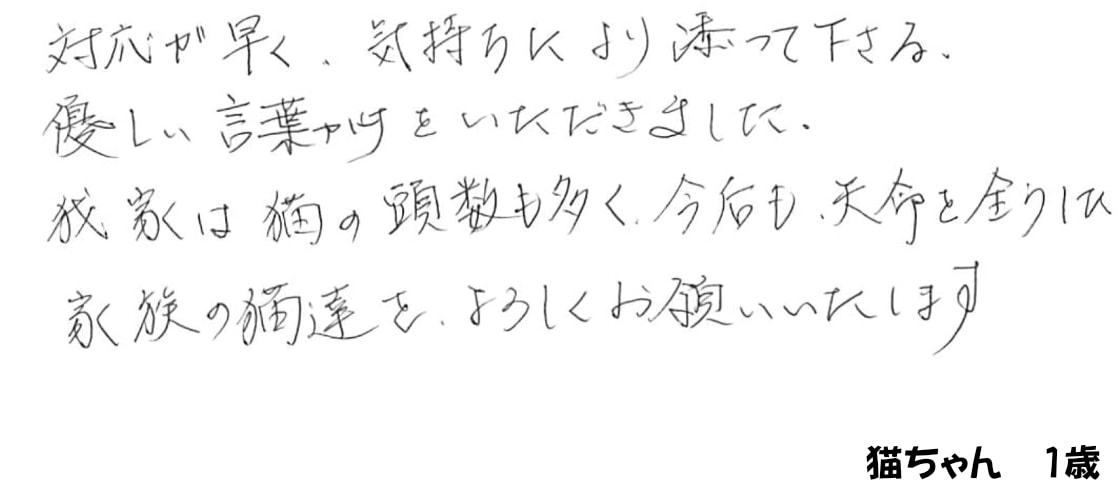 対応が早く、気持ちにより添って下さる。
優しい言葉かけをいただきました。
我家は猫の頭数も多く、今后も、天命を全うした
家族の猫達を、よろしくお願いいたします
猫ちゃん　1歳